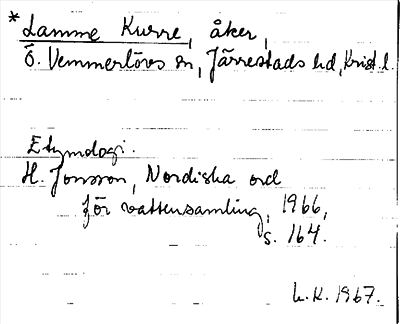 * Lamme Kurre, åker,
Ö. Vemmerlövs sn, Järrestads hd, Krist. l.
Etymologi.
H. Jonsson, Nordiska ord
för vattensamling, 1966,
s. 164.
L.K. 1967.